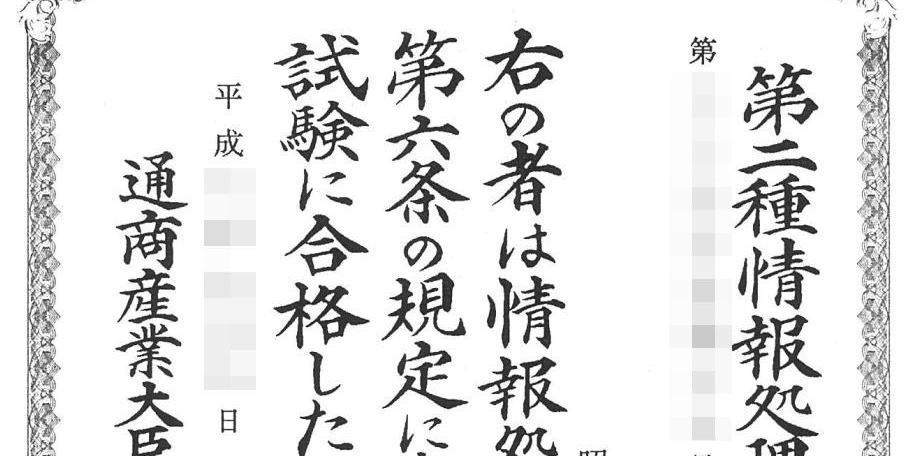 第二種情報処理
第
右の者は情報処
第六条の規定に
試験に合格した
平成
日
通商産業大臣